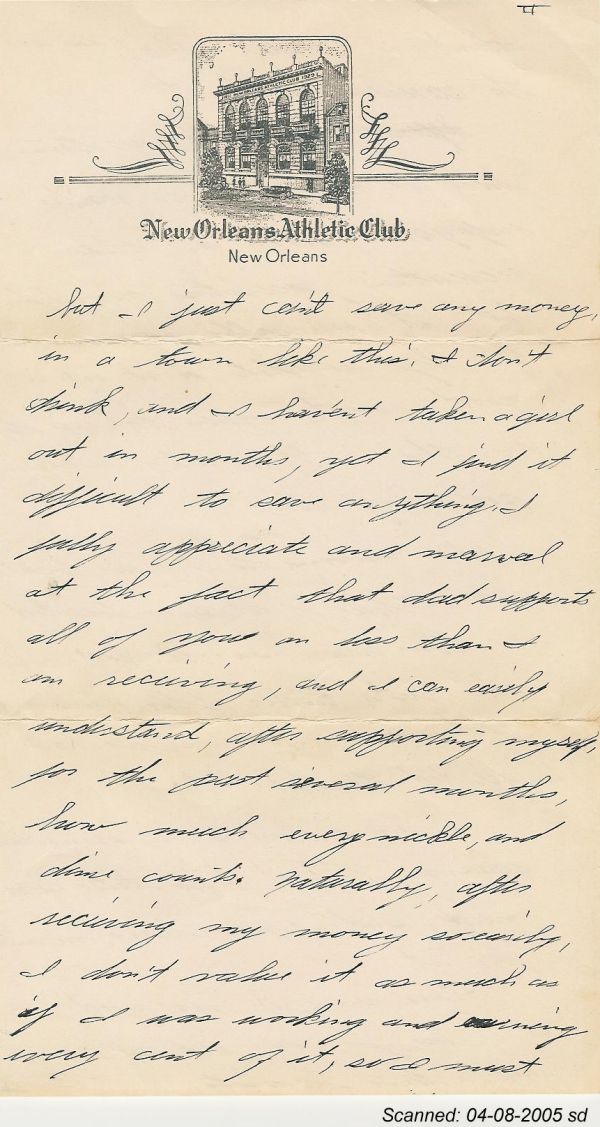 II
NEW ORLEANS ATHLETIC CLUB 1929
New Orleans Athletic Club
New Orleans
but I just can't save any money,
in a town like this. I don't
drink, and I haven't taken a girl
out in months, yet I find it
difficult to save anything. I
fully appreciate and marvel
at the fact that dad supports
all of you on less than I
am receiving, and I can easily
understand, after supporting myself,
for the past several months,
how much every nickle, and
dime counts. Naturally, after
receiving my money so easily,
I don't value it as much as
if I was working and earning
every cent of it, so I must
Scanned: 04-08-2005 sd